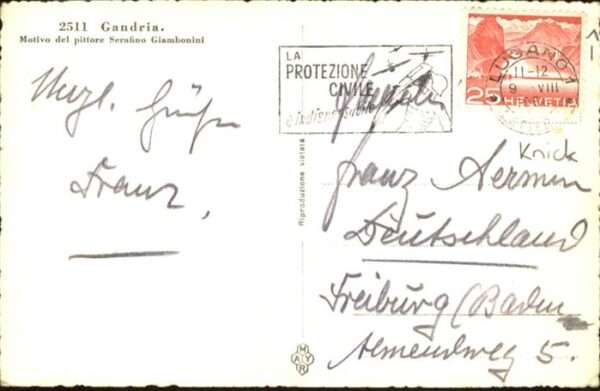 2511 Gandria.
Motivo del pittore Serafino Giambonini
Herzl. Grüße
Franz,
LA
PROTEZIONE
CIVILE
è indispensabile
LUGANO 1
11-12
9 VIII
25 HELVETIA
Knick
Familie
Franz Aermen
Deutschland
Freiburg (Baden
Almendweg 5.
Riproduzione vietata
MAYR